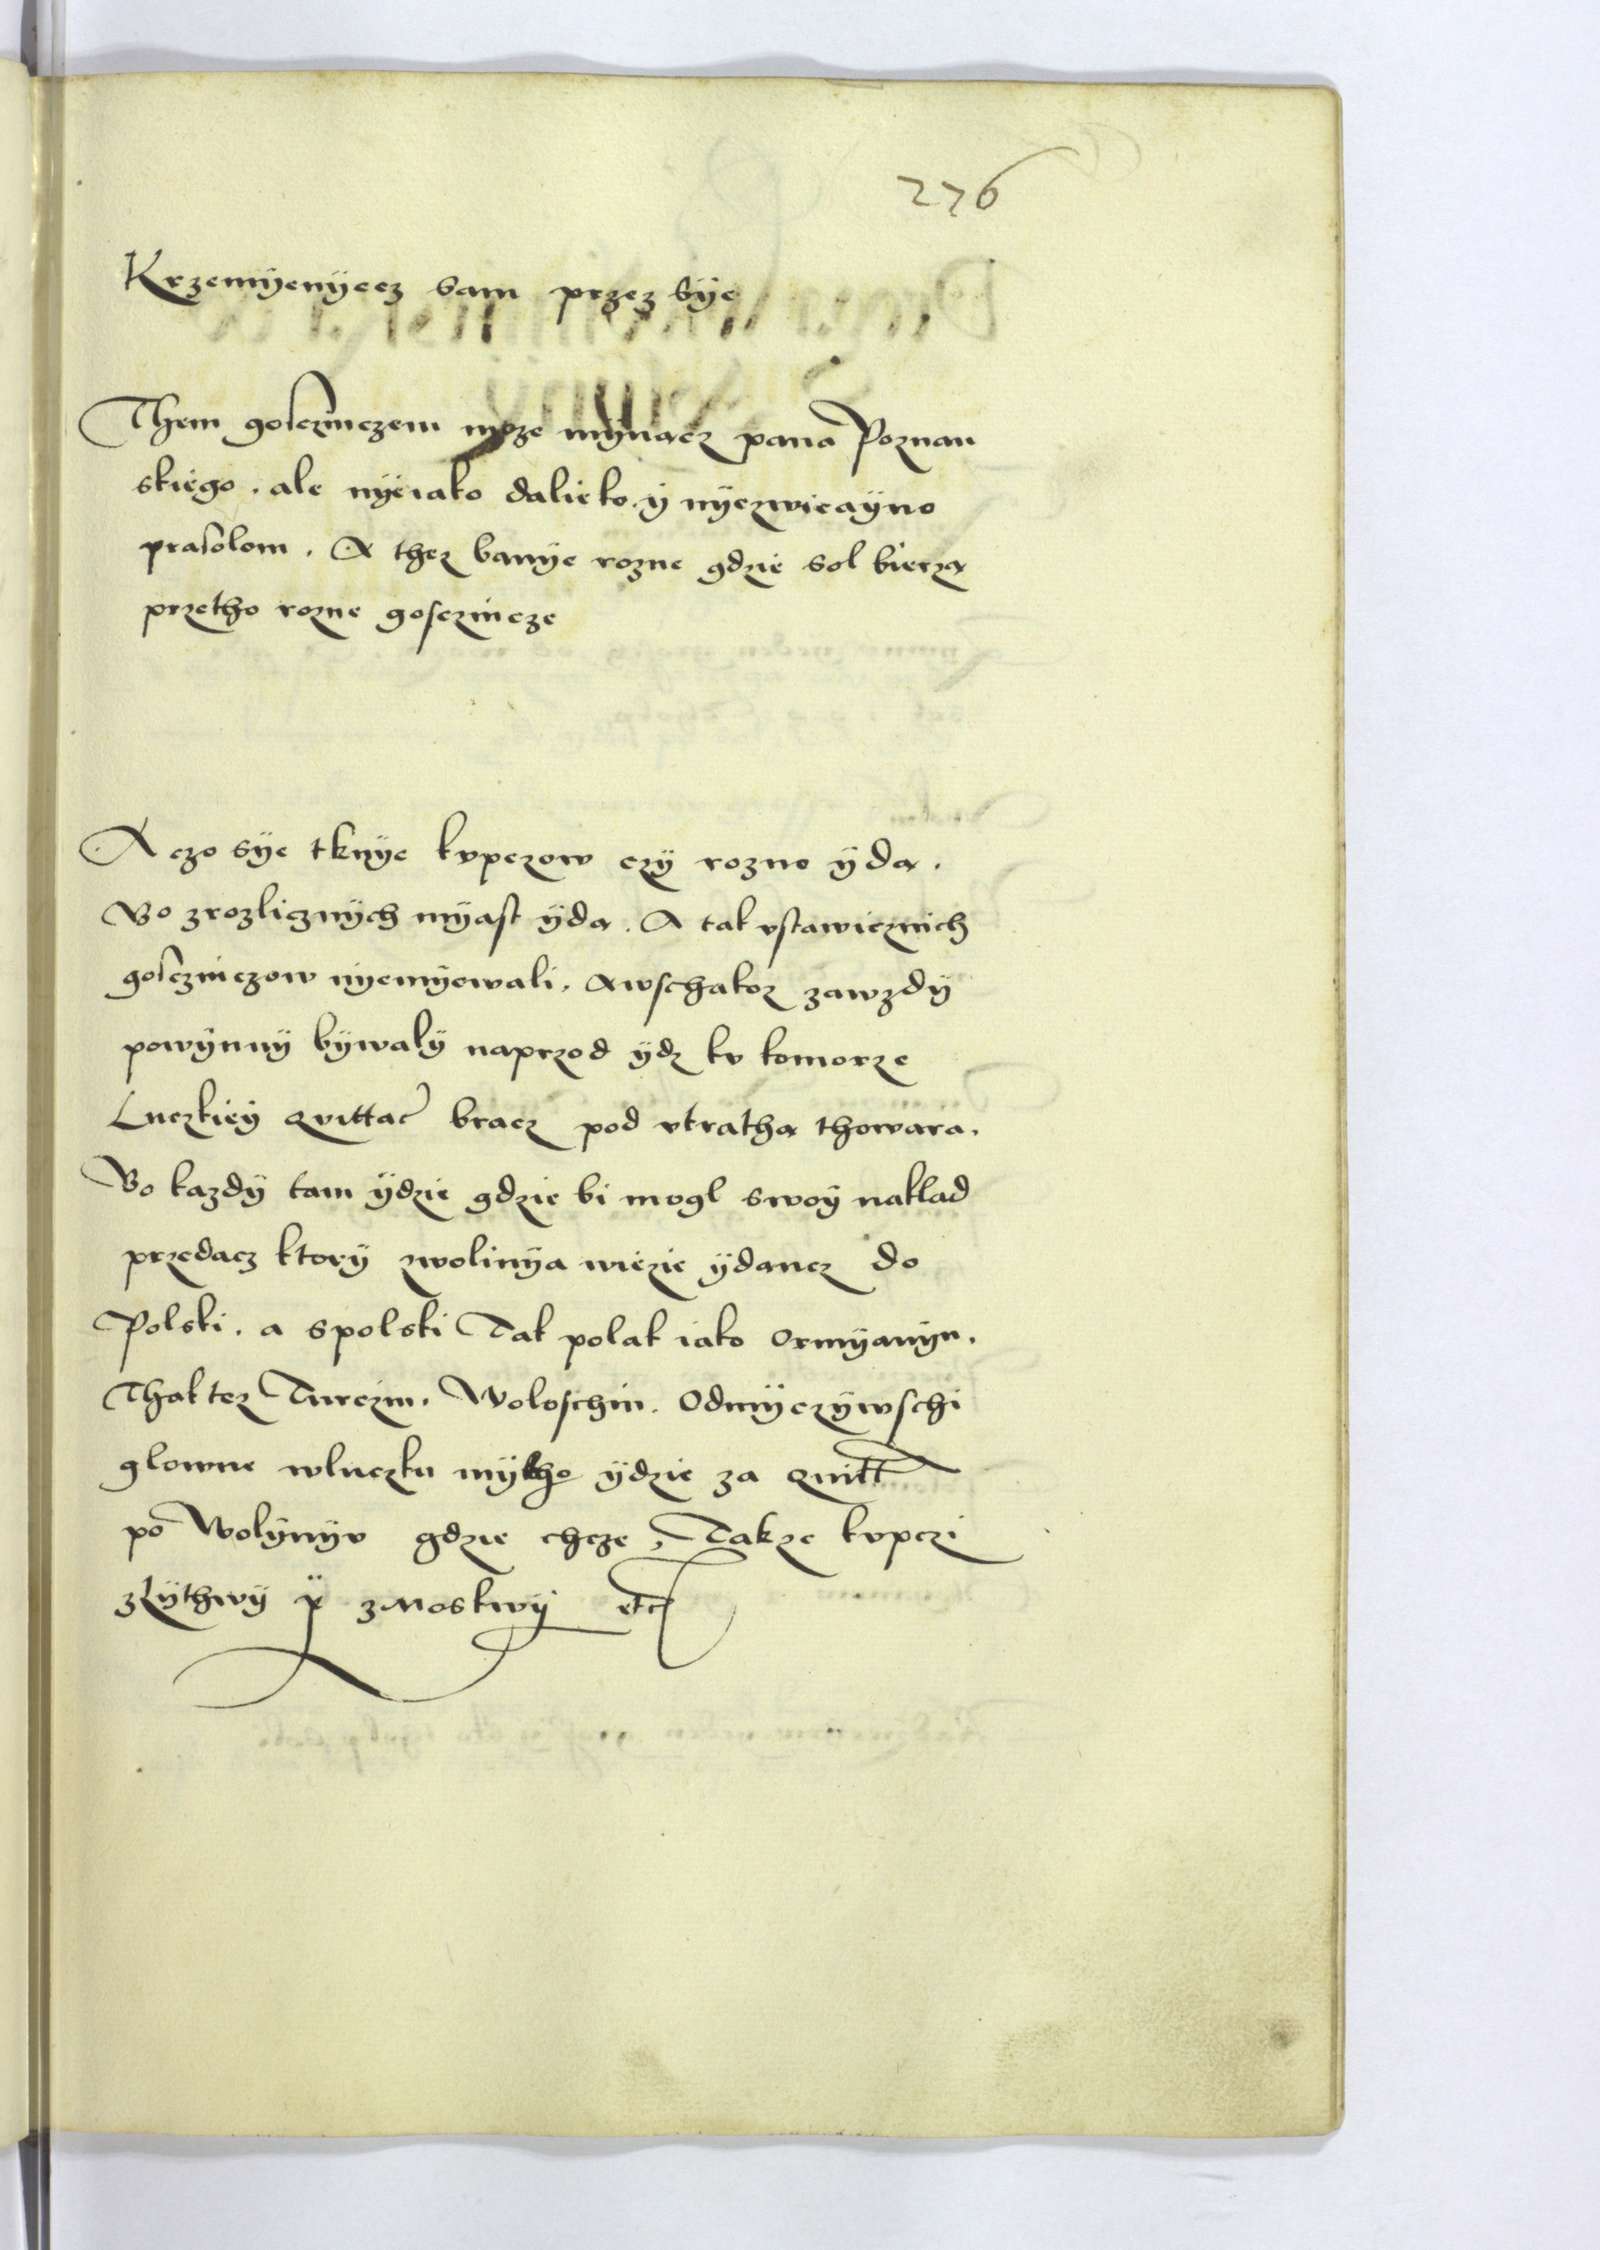 276
Krzemÿenÿecz sam przez sÿe
Them goscznczem moze mÿnącz pana Poznan
skiego . ale nÿeiako dalieko . ÿ nÿezwicaÿno
prasolom . A thez banÿe rozne gdzie sol bierzą
przetho rozne gosczincze
A czo sÿe tknÿe kvpczow czÿ rozno ÿdą .
Bo zrozlicznÿch mÿast ÿdą . A tak vstawicznich
gosczinczow nÿemÿewali . Awschakoz zawzdÿ
powÿnnÿ bÿwalÿ naprzod ÿdz kv komorze
Luczkieÿ qvittac bracz pod vtrathą thowara .
Bo kazdÿ tam ÿdzie gdzie bi mogl swoÿ naklad
przedacz ktorÿ zwolinÿa wiezie ÿdancz do
Polski . a spolski Tak polak iako Ormÿanÿn .
Thak tez Turczin . Woloschin . Odmÿczÿwschi
glowne wluczku mÿtho ÿdzie za quitt
po Wolÿnÿv gdzie chcze , Takze kvpczi
zLÿthwÿ ÿ zMoskwÿ etc